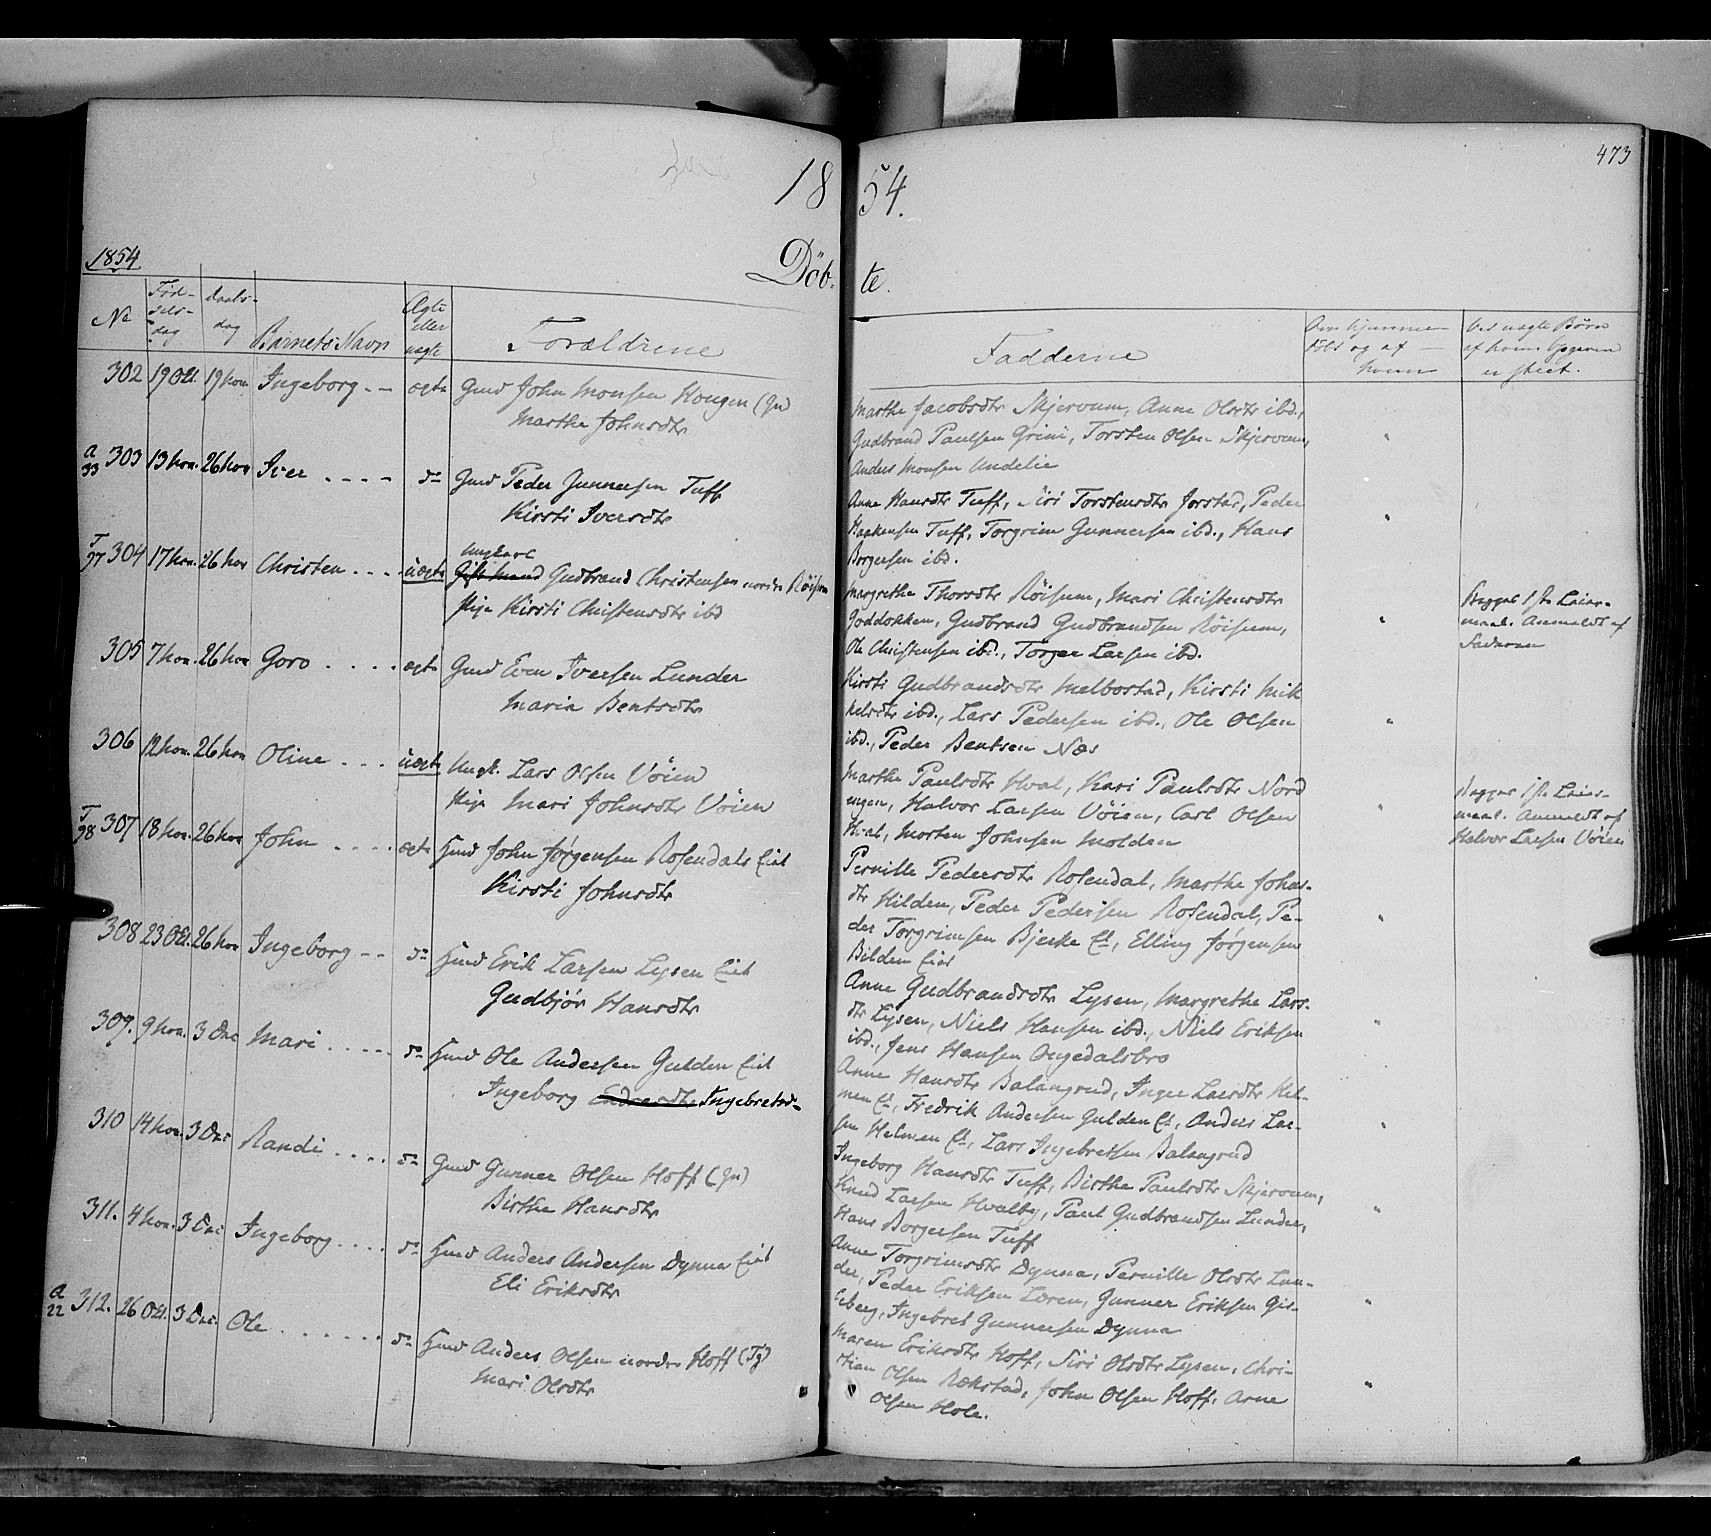 473
18 54.
1854
Döb- te.
No
Fød-
sels-
dag
Daabs-
dag
Barnets Navn
Ægte
eller
uægte
Forældrene
Fadderne
Om hjemme-
døbt og af
hvem
Ved uægte Børn
af hvem Opgaven
er skeet.
302 19 Okt. 19 Nov. Ingeborg - - ægte Gmd John Monsen Haugen (Gn)
Marthe Johnsdtr
Marthe Jacobsdtr Skjervum, Anne Olsdtr ibd.,
Gudbrand Paulsen Grini, Torsten Olsen Skjervum,
Anders Monsen Undelie
A
33 303 13 Nov. 26 Nov Iver . . . . do Gmd Peder Gunnersen Tuff
Kirsti Iversdtr
Anne Hansdtr Tuff, Siri Torstensdtr Jorstad, Peder
Haakensen Tuff, Torgrim Gunnersen ibd., Hans
Borgersen ibd.
T
97 304 17 Nov. 26 Nov Christen . . . uægte
Ungkarl
Gift Mand Gudbrand Christensen nordre Røisum
Pige Kirsti Christensdtr ibd
Margrethe Thorsdtr Røisum, Mari Christensdtr
Goddokken, Gudbrand Gudbrandsen Røisum,
Ole Christensen ibd., Torger Larsen ibd.
Begges 1ste Leier-
maal. Anmeldt af
Faderen
305 7 Nov. 26 Nov Goro . . . . ægte Gmd Even Iversen Lunder
Marie Bentsdtr
Kirsti Gudbrandsdtr Melbostad, Kirsti Mik
kelsdtr ibd., Lars Pedersen ibd., Ole Olsen
ibd., Peder Bentsen Næs
306 12 Nov. 26 Nov Oline . . . uægte Ungk. Lars Olsen Vøien
Pige Mari Johnsdtr Vøien
Marthe Paulsdtr Hval, Kari Paulsdtr Nord
engen, Halvor Larsen Vøien, Carl Olsen
Hval, Morten Johnsen Molden
Begges 1ste Leier-
maal. Anmeldt af
Halvor Larsen Vøien
T
98 307 18 Nov. 26 Nov John . . . . ægte Hmd John Jørgensen Rosendals Eiet
Kirsti Johnsdtr
Pernille Pedersdtr Rosendal, Marthe Johns-
dtr Hilden, Peder Pedersen Rosendal, Pe-
der Torgrimsen Bjerke Et, Elling Jørgensen
Bilden Eiet
308 23 Okt. 26 Nov Ingeborg - - do Hmd Erik Larsen Lysen Eiet
Gudbjør Hansdtr
Anne Gudbrandsdtr Lysen, Margrethe Lars-
dtr Lysen, Niels Hansen ibd., Niels Eriksen
ibd., Jens Hansen Ongedalsbro
309. 9 Nov. 3 Dec Mari . . . . . do Hmd Ole Andersen Gulden Eiet
Ingeborg Endresdtr Ingebretsd-
Anne Hansdtr Balangrud, Inger Larsdtr Hel-
men Et, Fredrik Andersen Gulden Et, Anders Lar-
sen Helmen Et, Lars Ingebretsen Balangrud
310 14 Nov. 3 Dec Randi . . . . do Gmd Gunner Olsen Hoff (Gn)
Birthe Hansdtr
Ingeborg Hansdtr Tuff, Birthe Paulsdtr Skjervum,
Knud Larsen Hvalby, Paul Gudbrandsen Lunder,
Hans Borgersen Tuff
311. 4 Nov. 3 Dec Ingeborg . . . . do Hmd Anders Andersen Dynna Eiet
Eli Eriksdtr
Anne Torgrimsdtr Dynna, Pernille Olsdtr Lun-
der, Peder Eriksen Loren, Gunner Eriksen Gis-
leberg, Ingebret Gunnersen Dynna
A
22 312. 26 Okt. 3 Dec. Ole . . . . . . . do Hmd Anders Olsen nordre Hoff (Tg)
Mari Olsdtr
Maren Eriksdtr Hoff, Siri Olsdtr Lysen, Chri-
stian Olsen Rækstad, John Olsen Hoff, Arne
Olsen Hole.